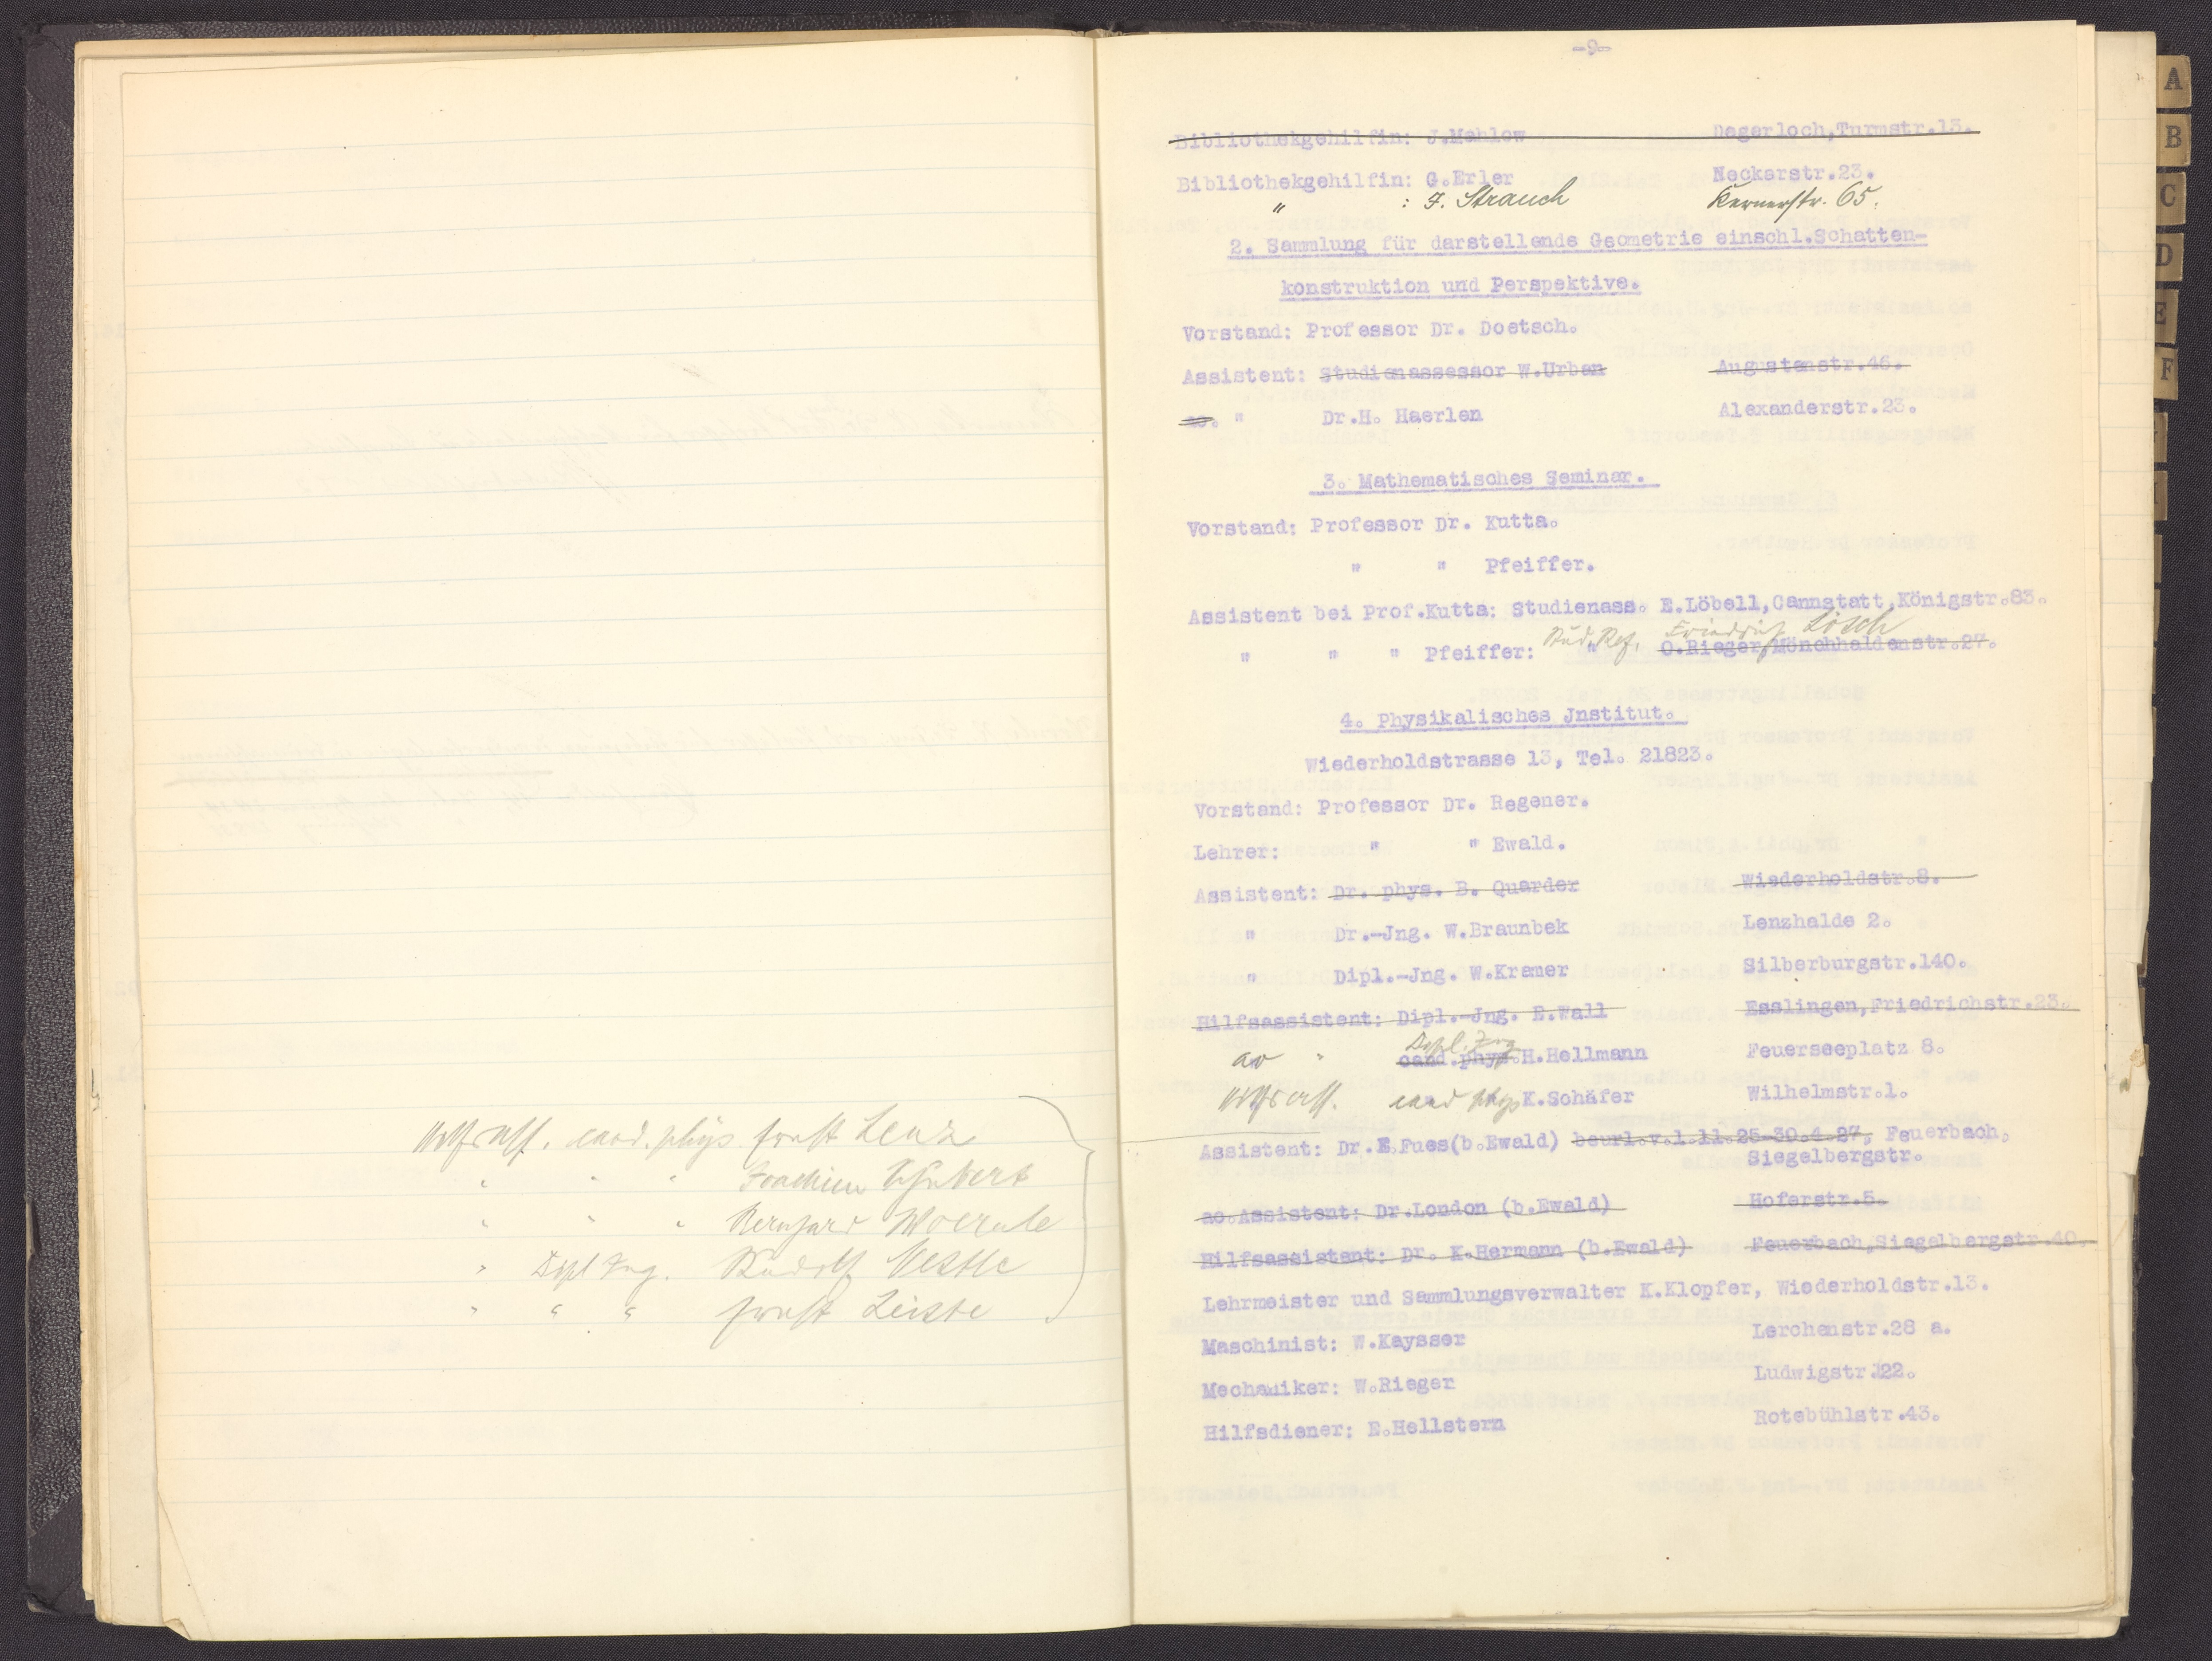 Hilfsass. cand. phys Ernst Lenz
" " " Joachim Schubert
" " " Bernhard Woernle
" Dipl Ing. Rudolf Nestle
" " " Ernst Leiste
-9-
Bibliothekgehilfin: J.Mahlow Degerloch,Turmstr.13.
Bibliothekgehilfin: G.Erler Neckarstr.23.
" : F. Strauch Kernerstr. 65.
2. Sammlung für darstellende Geometrie einschl.Schatten-
konstruktion und Perspektive.
Vorstand: Professor Dr. Doetsch.
Assistent: Studienassessor W.Urban Augustenstr.46.
ao. " Dr.H. Haerlen Alexanderstr.23.
3. Mathematisches Seminar.
Vorstand: Professor Dr. Kutta.
" " Pfeiffer.
Assistent bei Prof.Kutta: Studienass. E.Löbell,Cannstatt,Königstr.83.
Stud. Ref. Friedrich Lösch
" " " Pfeiffer: " O.Rieger,Mönchhaldenstr.27.
4. Physikalisches Jnstitut.
Wiederholdstrasse 13, Tel. 21823.
Vorstand: Professor Dr. Regener.
Lehrer: " " Ewald.
Assistent: Dr. phys. B. Quarder Wiederholdstr.8.
" Dr.-Jng. W.Braunbek Lenzhalde 2.
" Dipl.-Jng. W.Kramer Silberburgstr.140.
Hilfsassistent: Dipl.-Jng. E.Wall Esslingen,Friedrichstr.23.
Dipl. Ing
ao " cand.phys.H.Hellmann Feuerseeplatz 8.
Hilfsass. cand phys K.Schäfer Wilhelmstr.1.
Assistent: Dr.E.Fues(b.Ewald) beurl.v.1.11.25-30.4.27, Feuerbach,
Siegelbergstr.
ao.Assistent: Dr.London (b.Ewald) Hoferstr.5.
Hilfsassistent: Dr. K.Hermann (b.Ewald) Feuerbach,Siegelbergstr.40.
Lehrmeister und Sammlungsverwalter K.Klopfer, Wiederholdstr.13.
Maschinist: W.Kaysser Lerchenstr.28 a.
Mechaniker: W.Rieger Ludwigstr.122.
Hilfsdiener: E.Hellstern Rotebühlstr.43.
A
B
C
D
E
F